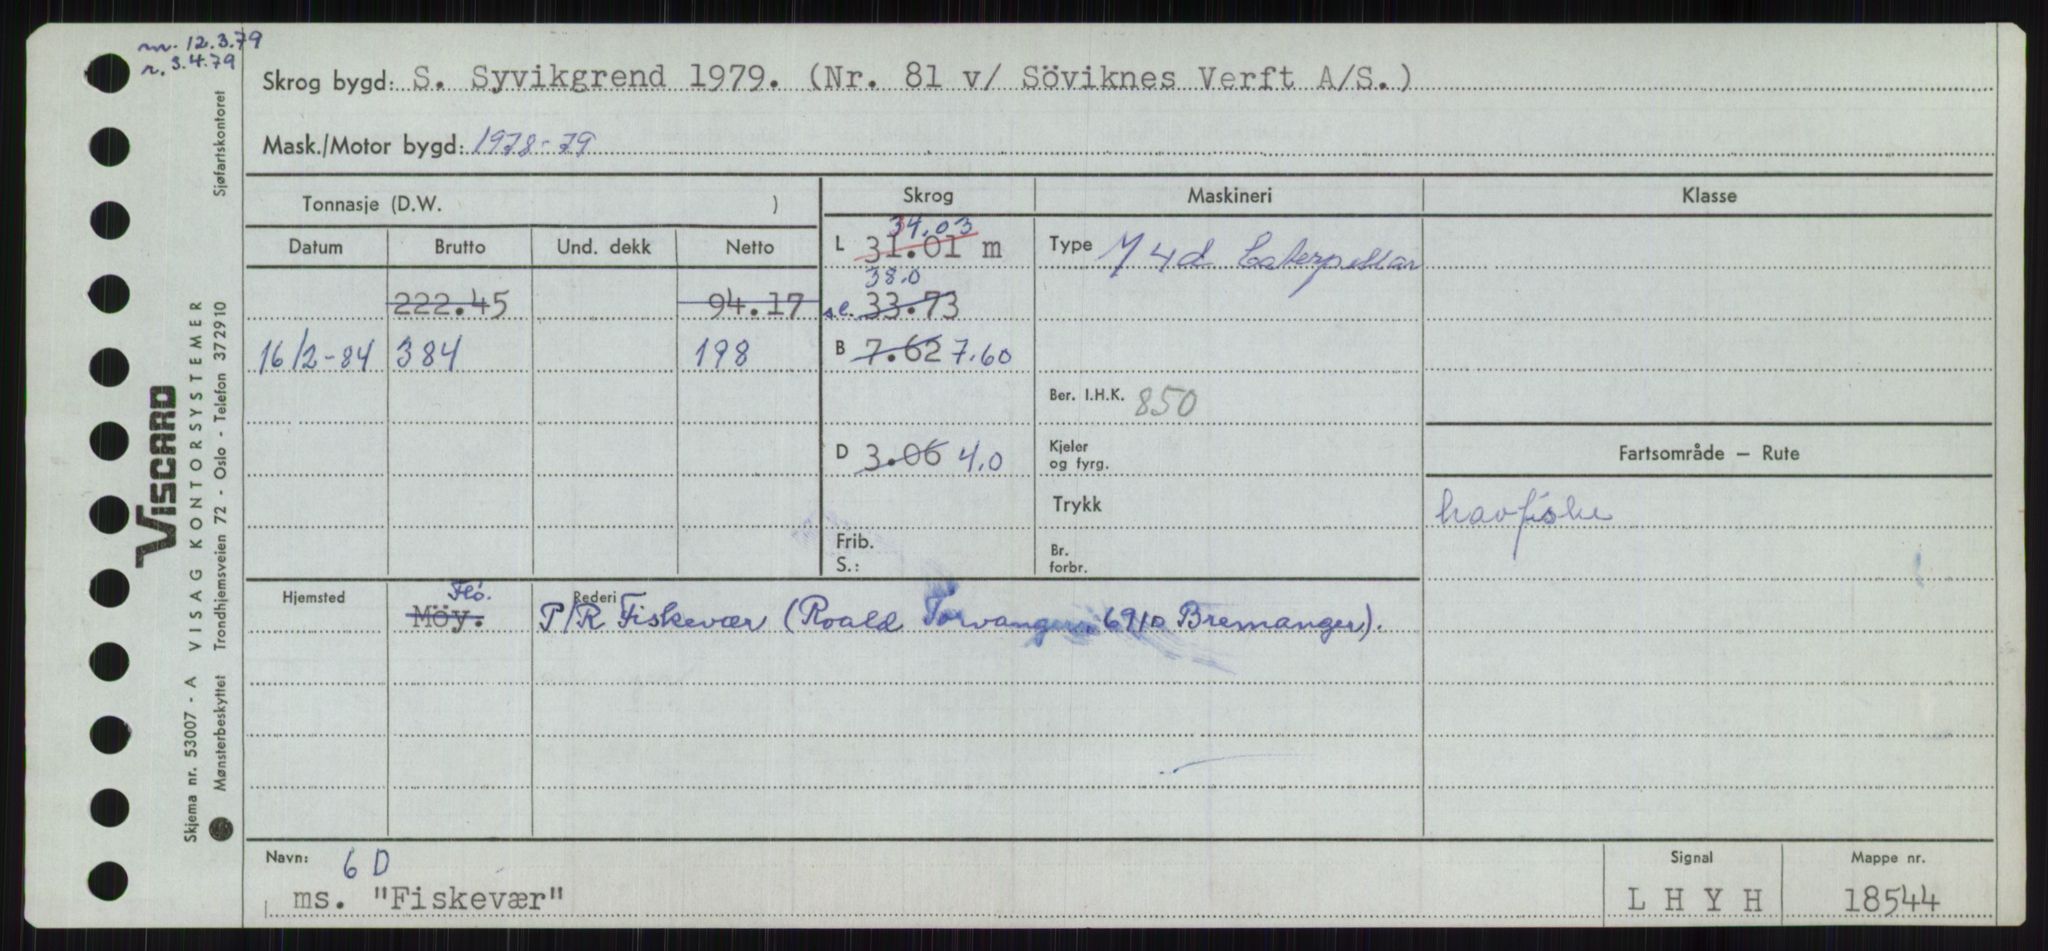 m. 12.3.79
r. 3.4.79
Skrog bygd: S. Syvikgrend 1979. (Nr. 81 v/ Söviknes Verft A/S.)
Mask./Motor bygd: 1978-79
Tonnasje (D.W. ) Skrog Maskineri Klasse
Datum Brutto Und. dekk Netto
34.03
L 31.01 m Type 4d Caterpillar
38.0
222.45 94.17 s.l. 33.73
16/2-84 384 198 B 7.62 7.60
Ber. I.H.K. 850
D 3.06 4.0 Kjeler og fyrg. Fartsområde — Rute
Trykk havfiske
Frib. S.: Br. forbr.
Flö.
Hjemsted Möy. Rederi P/R Fiskevær (Roald Torvanger 6910 Bremanger).
Navn: 6 D Signal Mappe nr.
ms. "Fiskevær" L H Y H 18544
Viscard
VISAG KONTORSYSTEMER
Skjema nr. 53007 - A
Mønsterbeskyttet Trondhjemsveien 72 - Oslo - Telefon 372910 Sjøfartskontoret